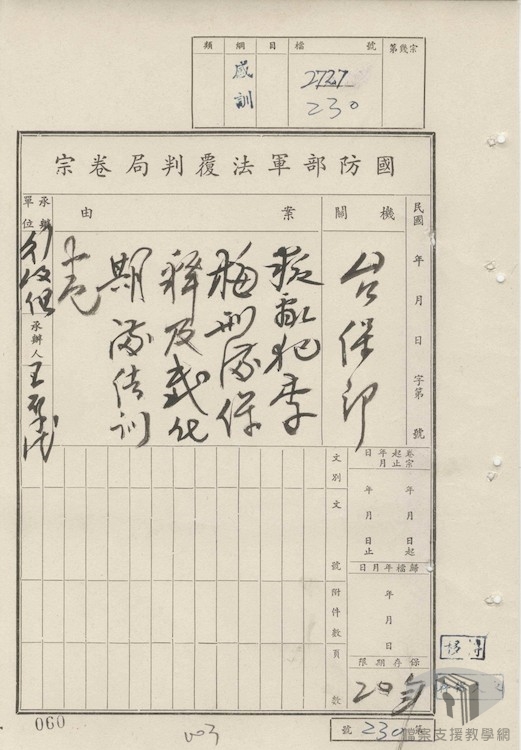 類 綱 目 檔 號 第幾宗
感訓 2727
230
國防部軍法覆判局卷宗
民國 年 月 日 字第 號
機關
台保部
案由
叛亂犯李
梅刑滿保
釋及感化
期滿結訓
承辦單位
承辦人
卷宗起止年月日
年 月 日起
年 月 日止
歸檔年月日
年 月 日
保存期限
20年
文別
文號
附件數
頁數
060
003
號 230 第
檔案支援教學網